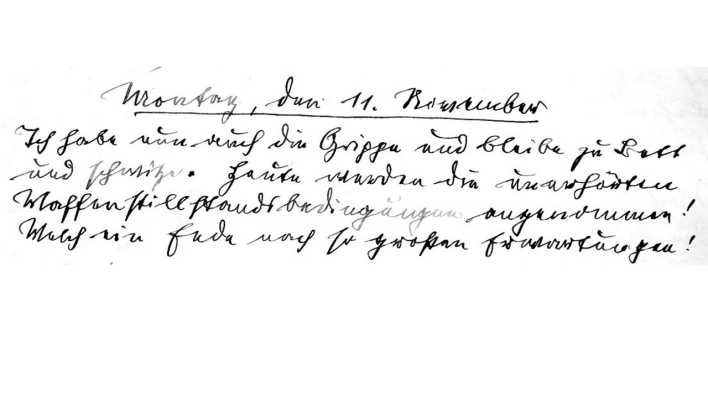 Montag, den 11. November
Ich habe nun auch die Grippe und bleibe zu Bett
und schwitze. Heute werden die unerhörten
Waffenstillstandsbedingungen angenommen!
Welch ein Ende nach so großen Erwartungen!